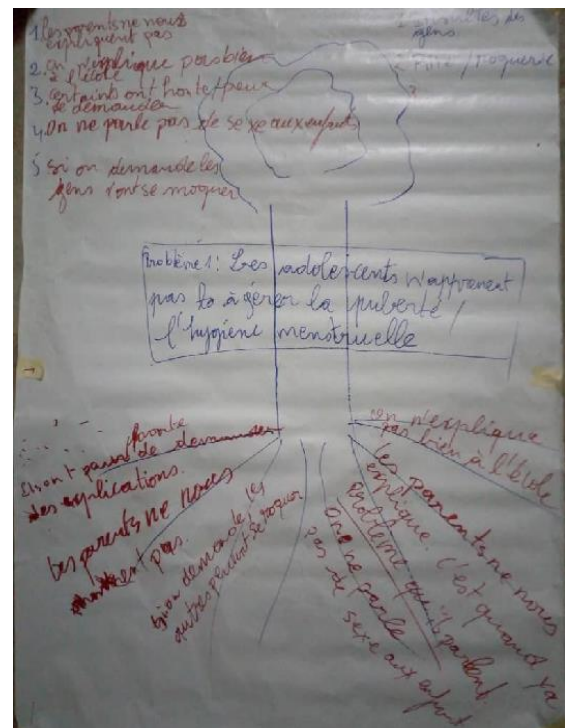 1. les parents ne nous
expliquent pas
2. on n'explique pas bien
à l'école
3. certains ont honte/peur
de demander
4. On ne parle pas de sexe aux enfants
5 si on demande les
gens vont se moquer
des
gens
/ moquerie
?
Problème 1: Les adolescents n'apprennent
pas to à gérer la puberté /
l'hygiène menstruelle
1
on n'explique
pas bien à l'école
honte
ont peur de demander
des explications.
les parents ne nous
pas.
si on demande, les
autres peuvent se moquer
One ne parle
pas de sexe aux enfant
les parents ne nous
explique. C'est quand ya
problème qu'ils parlent